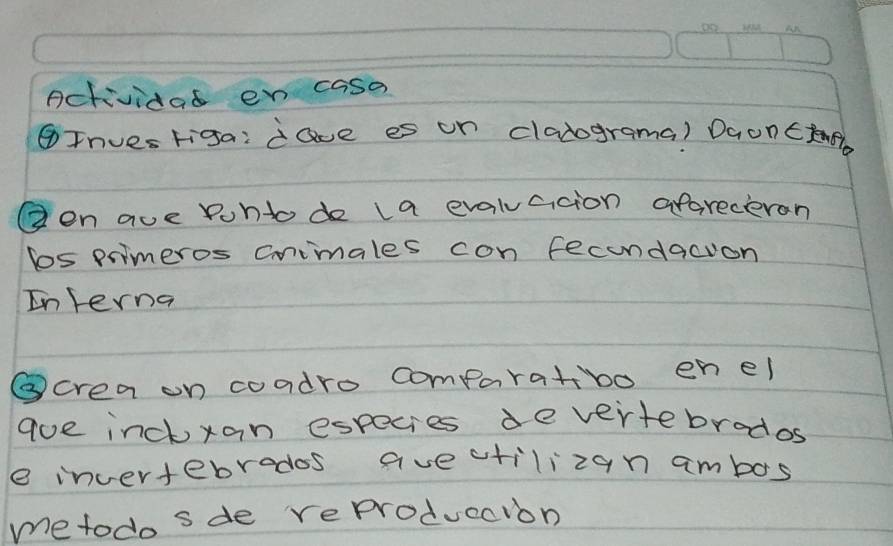 DD MM AA
Actividad en casa
① Investiga: ¿Que es un cladograma) Da un
② en que punto de la evaluacion aparecieron
los primeros animales con fecundacion
Interna
③ crea un cuadro comparatibo en el
que incluxan especies de vertebrados
e invertebrados que utilizan ambos
metodos de reproduccion